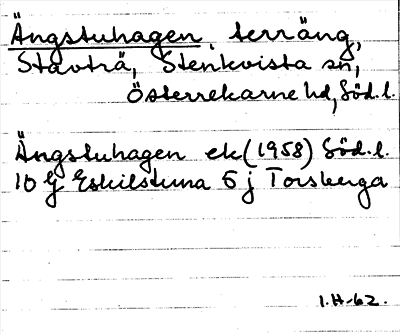 Ängstuhagen, terräng,
Stavträ, Stenkvista sn,
Österrekarne hd, Söd.l.
Ängstuhagen ek (1958) Söd.l.
10 G Eskilstuna 5 j Torsberga
1.H-62.